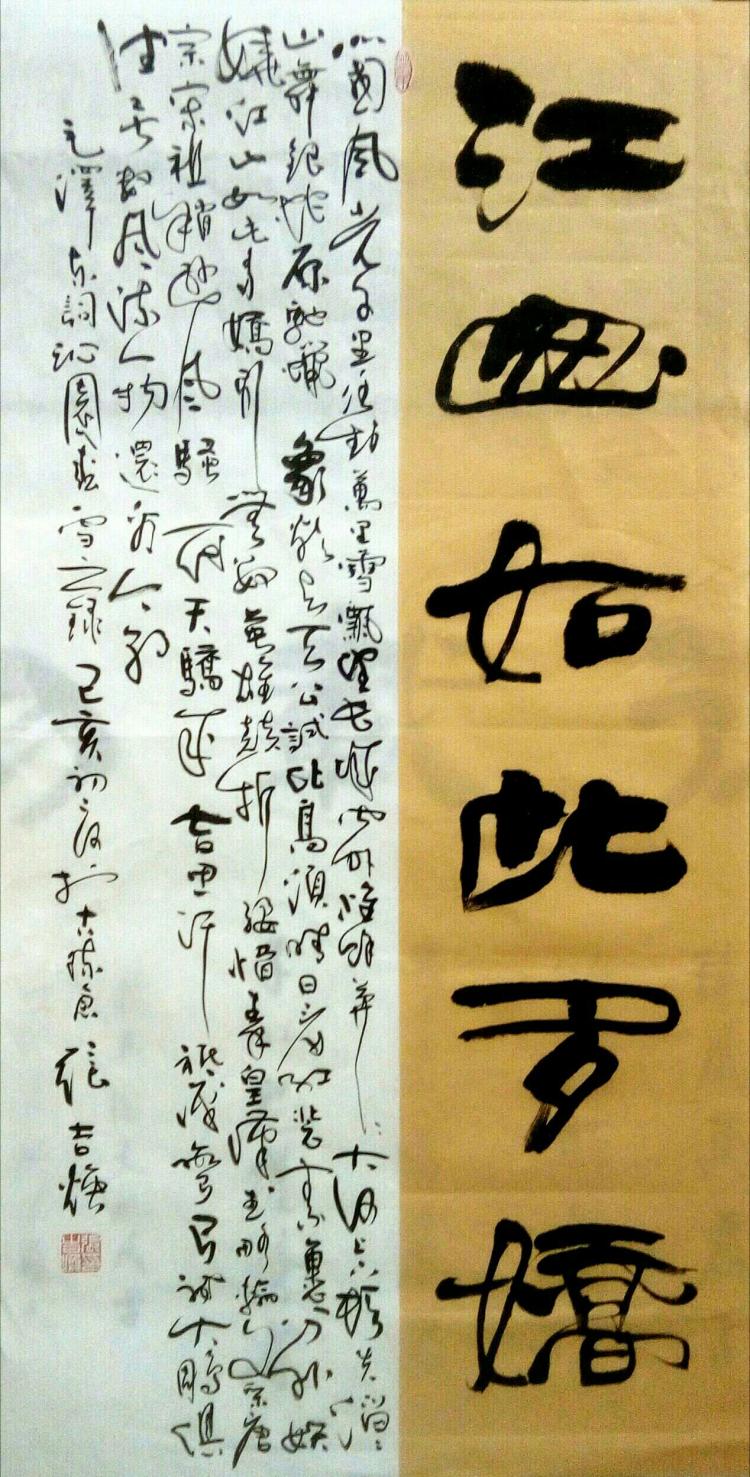 江山如此多嬌
北國風光千里冰封萬里雪飄望長城內外惟餘莽莽大河上下頓失滔滔
山舞銀蛇原馳蠟象欲與天公試比高須晴日看紅裝素裹分外妖
嬈江山如此多嬌引無數英雄競折腰惜秦皇漢武略輸文采唐
宗宋祖稍遜風騷一代天驕成吉思汗祇識彎弓射大鵰俱
往矣數風流人物還看今朝
毛澤東詞沁園春雪 己亥初夏於 張吉煥